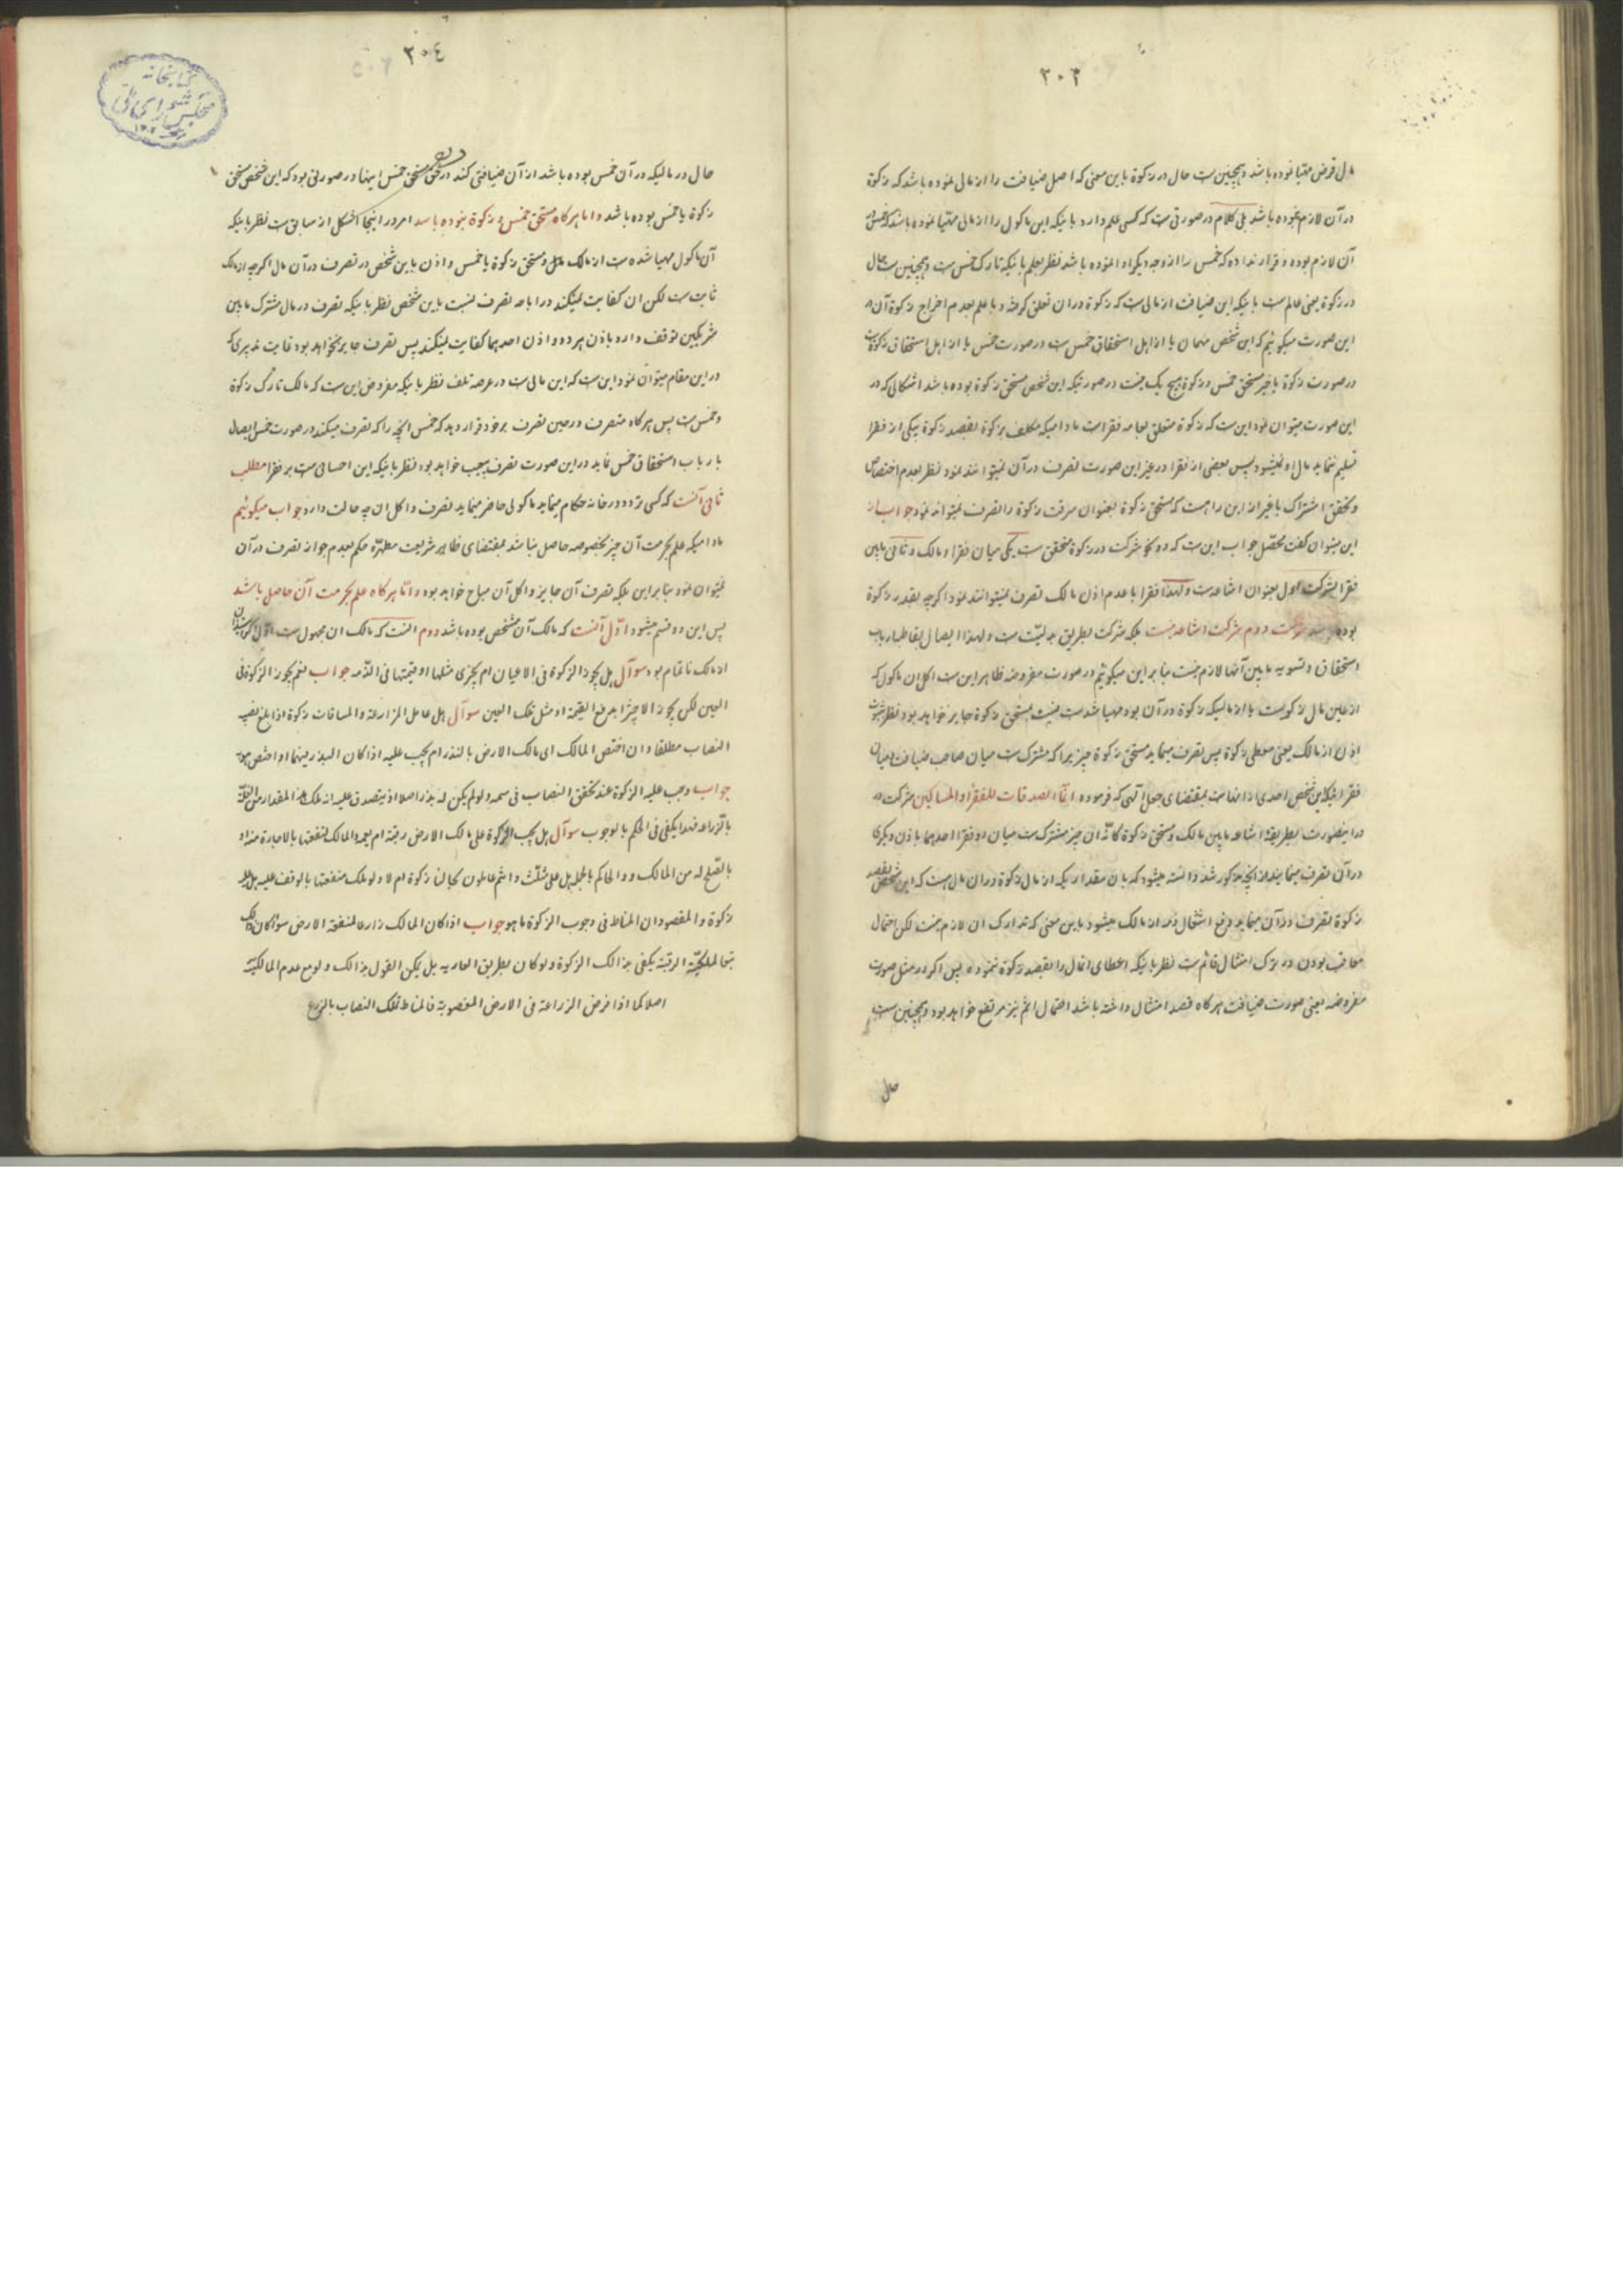 ۳۰۳
مال قرض مهیا نموده باشد و همچنین است حال در زکوة باین معنی که اصل ضیافت را از مالی نموده باشد که زکوة
در آن لازم نموده باشد بلی کلام در صورتی است که کسی علم دارد باینکه این ماکول را از مالی مهیا نموده باشد که خمس در
آن لازم بوده و قرار نداده که خمس را از وجه دیگر ادا نموده باشد نظر بعلم باینکه تارک خمس است و همچنین است حال
در زکوة یعنی عالم است باینکه این ضیافت از مالی است که زکوة در ان تعلق گرفته و با علم بعدم اخراج زکوة آن در
این صورت میکوئیم که این شخص مهمان یا از اهل استحقاق خمس است در صورت خمس یا از اهل استحقاق زکوة است
در صورت زکوة یا غیر مستحق خمس و زکوة هیچ یک نیست در صورتیکه این شخص مستحق زکوة بوده باشد اشکالی که در
این صورت میتوان نمود این ست که زکوة متعلق بعامه فقرا است مادامیکه مکلف بزکوة بقصد زکوة بیکی از فقرا
تسلیم ننماید مال او نمیشود پس بعضی از فقرا در غیر این صورت تصرف در آن نمیتوانند نمود نظر بعدم اختصاص
و تحقق اشتراک با غیر از این راه است که مستحق زکوة بعنوان سرقت زکوة را تصرف نمیتواند نمود جواب از
این میتوان گفت محصّل جواب این ست که دو نحو شرکت در زکوة متحقق ست یکی میان فقرا و مالک و ثانی بابین
فقرا شرکت اول بعنوان اشاعه است و لهذا فقرا با عدم اذن مالک تصرف نمیتوانند نمود اگرچه بقدر زکوة
بوده باشد شرکت دوم شرکت اشاعه نیست بلکه شرکت بطریق بدلیّت ست و لهذا ایصال بقاطبه ارباب
استحقاق و تسویه مابین آنها لازم نیست بنابراین میکوئیم در صورت مفروضه ظاهر این ست اکل ان ماکول که
از عین مال زکویست یا از مالیکه زکوة در آن بود مهیا شده ست نسبت بمستحق زکوة جایز نخواهد بود نظر
اذن از مالک یعنی معطی زکوة پس تصرف مینماید مستحق زکوة چیزیرا که مشترک ست میان صاحب ضیافت و میان
فقرا بلکه این شخص احدی از انهاست بمقتضای جعل الهی که فرموده انّما الصدقات للفقراء و المساکین شرکت در
در اینصورت بطریقه اشاعه مابین مالک و مستحق زکوة کانّه ان چیز مشترک ست میان او و فقرا احدهما باذن دیگری
در آن تصرف مینماید از آنچه مذکور شد دانسته میشود که بان مقداریکه از مال زکوة در ان مال هست که این شخص بقصد
زکوة تصرف در آن مینماید رفع اشتغال ذمه از مالک میشود باین معنی که تدارک ان لازم نیست لکن احتمال
معاقب بودن در ترک امتثال قائم ست نظر باینکه اعطای انمال را بقصد زکوة ننموده پس اگر در مثل صورت
مفروضه یعنی صورت ضیافت هرگاه قصد امتثال داشته باشد احتمال اثم نیز مرتفع خواهد بود و همچنین ست
حال
۳۰٤
کتابخانه
مجلس شورای ملی
حال در مالیکه در آن خمس بوده باشد از آن ضیافتی کند در حق مستحق خمس اینها در صورتی بود که این شخص مستحق
زکوة یا خمس بوده باشد و اما هرگاه مستحق خمس و زکوة نبوده باشد امر در اینجا اشکل از سابق ست نظر باینکه
آن ماکول مهیا شده ست از مالک و مستحق زکوة یا خمس و اذن باین شخص در تصرف در آن مال اگرچه از مالک
ثابت ست لکن ان کفایت نمیکند در اباحه تصرف نسبت باین شخص نظر باینکه تصرف در مال مشترک مابین
شریکین توقف دارد باذن هر دو و اذن احدهما کفایت نمیکند پس تصرف جایز نخواهد بود غایت تدبیری که
در این مقام میتوان نمود این ست که این مالی ست در عرصه تلف نظر باینکه مفروض این ست که مالک تارک زکوة
و خمس ست پس هرگاه متصرف در حین تصرف بر خود قرار دهد که خمس انچه را که تصرف میکند در صورت خمس ایصال
بارباب استحقاق خمس نماید در این صورت تصرف بی‌عیب خواهد بود نظر باینکه این احسانی ست بر فقرا مطلب
ثانی آنست که کسی تردد در خانه حکام مینماید ماکولی حاضر مینماید تصرف و اکل ان چه حالت دارد جواب میکوئیم
مادامیکه علم بحرمت آن چیز بخصوصه حاصل نباشد بمقتضای ظاهر شریعت مطهره حکم بعدم جواز تصرف در آن
نمیتوان نمود بنابراین بلکه تصرف آن جایز و اکل آن مباح خواهد بود و امّا هرگاه علم بحرمت آن حاصل باشد
پس این دو قسم میشود اوّل آنست که مالک آن مشخص بوده باشد دوم انست که مالک ان مجهول ست
از مالک ناتمام بود سوآل هل یجوز الزکوة فی الاعیان ام یجزی مثلها او قیمتها فی الذّمه جواب نعم یجوز الزکوة فی
العین لکن یجوز الاجتزا بدفع القیمة او مثل تلک العین سوآل هل عامل المزارعة و المساقات زکوة اذا بلغ نصیبه
النصاب مطلقا و ان اختص المالک ای مالک الارض بالبذر ام یجب علیه اذا کان البذر بینهما او اختص هو به
جواب وجب علیه الزکوة عند تحقق النصاب فی سهمه و لو لم یکن له بذر اصلا اذ یتصدق علیه انه ملک هذا المقدار من الغلّة
بالزراعه فهذا یکفی فی الحکم بالوجوب سوآل هل یجب الزکوة علی مالک الارض رقبته ام یعمه و المالک لمنفعتها بالاجارة منه او
بالصّلح له من المالک و الحاکم بالجمله هل علی مثلث و انتم عاملون کمالنا زکوة ام لا و لو ملک منفعتها بالوقف علیه هل علیه
زکوة و المقصود ان المناط فی وجوب الزکوة ما هو جواب اذا کان المالک زارعا لمنفعة الارض سواء کان ذلک
تبعا لملکیّة الرقبة یکفی بذالک الزکوة و لو کان بطریق العاریه بل یمکن القول بذالک و لو مع عدم المالکیّة
اصلا کما اذا فرض الزراعة فی الارض المغصوبة فالمناط تملک النصاب بالزرع